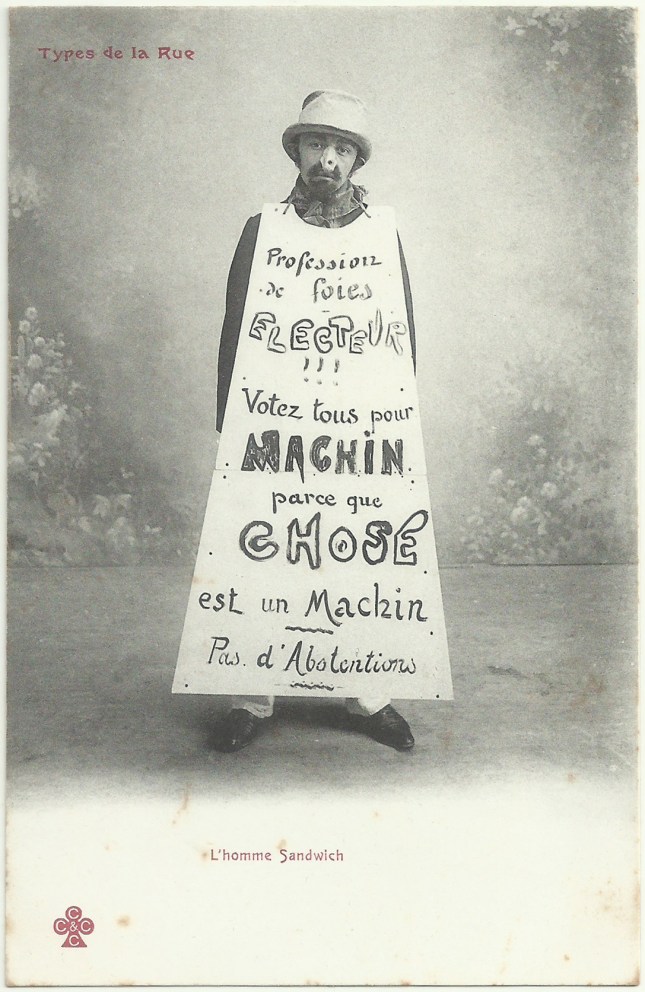 Types de la Rue
Profession
de foies
ELECTEUR
!!!
Votez tous pour
MACHIN
parce que
CHOSE
est un Machin
Pas. d'Abstentions
L'homme Sandwich
C
C&C
C